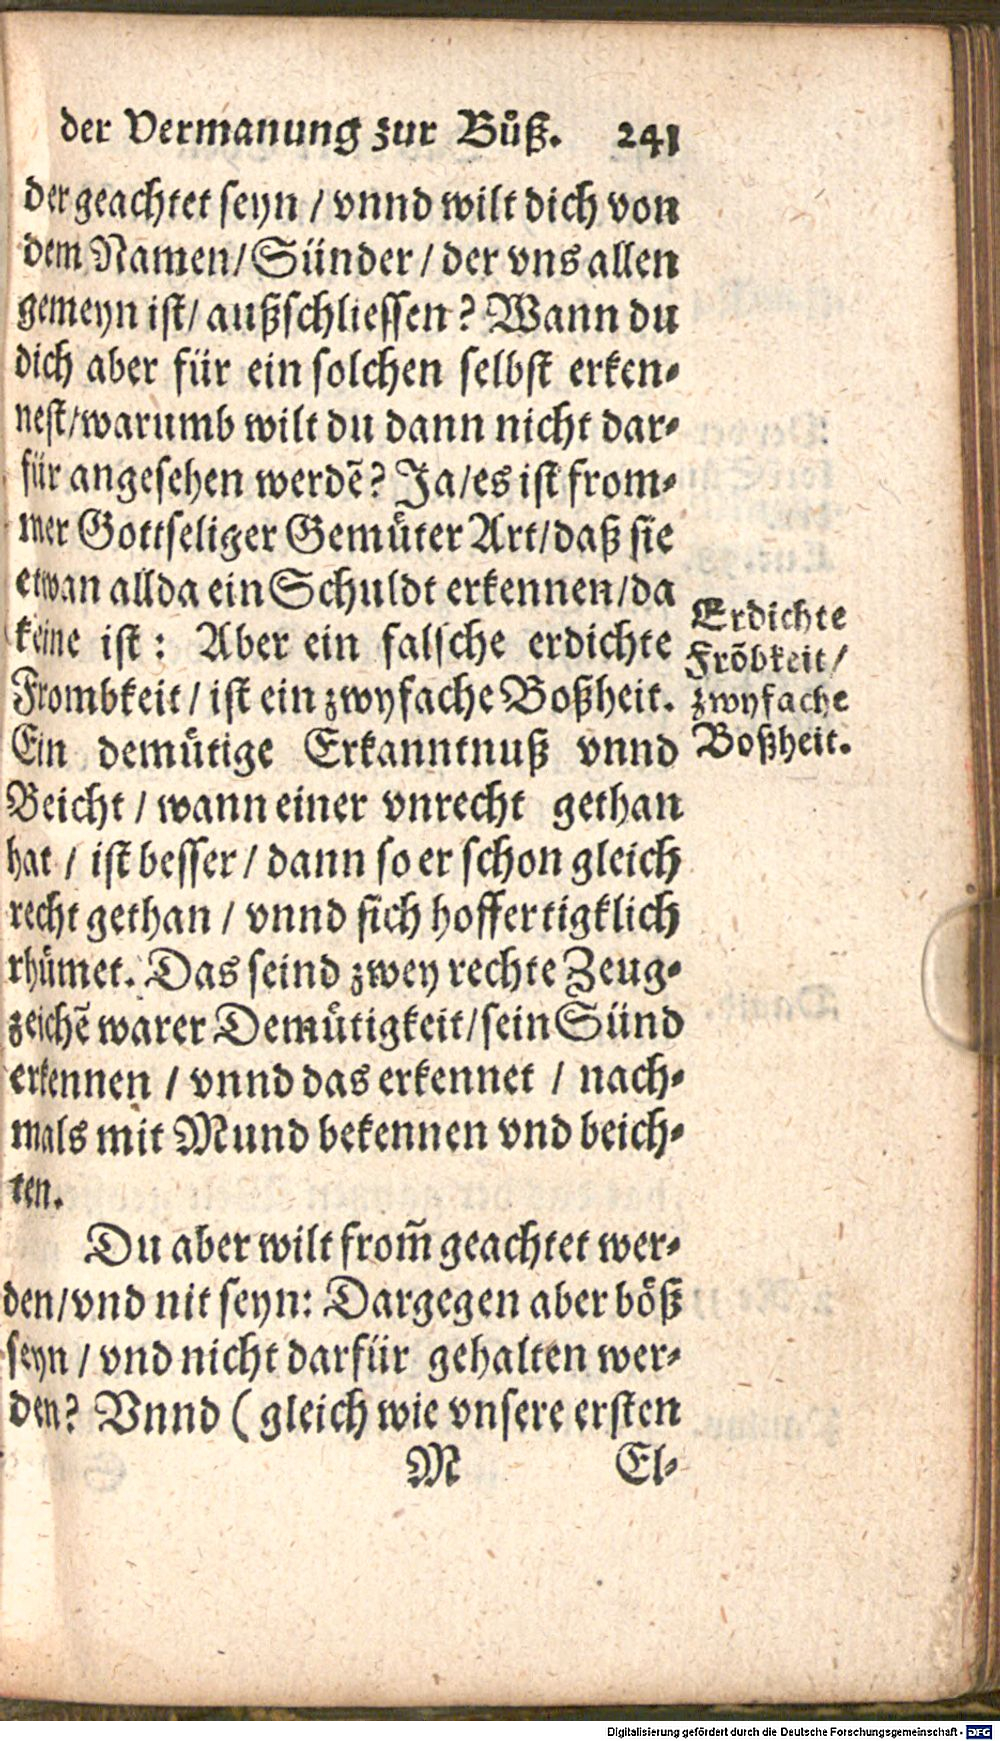 der Vermanung zur Bůß. 241
der geachtet seyn / vnnd wilt dich von
dem Namen/ Sünder / der vns allen
gemeyn ist/ außschliessen? Wann du
dich aber für ein solchen selbst erken-
nest/warumb wilt du dann nicht dar-
für angesehen werdẽ? Ja/es ist from-
mer Gottseliger Gemüter Art/daß sie
etwan allda ein Schuldt erkennen/da
keine ist: Aber ein falsche erdichte
Frombkeit / ist ein zwyfache Boßheit.
Ein demütige Erkanntnuß vnnd
Beicht / wann einer vnrecht gethan
hat / ist besser / dann so er schon gleich
recht gethan / vnnd sich hoffertigklich
rhümet. Das seind zwey rechte Zeug-
zeichẽ warer Demütigkeit/sein Sünd
erkennen / vnnd das erkennet / nach-
mals mit Mund bekennen vnd beich-
ten.
Du aber wilt from̃ geachtet wer-
den/vnd nit seyn: Dargegen aber böß
seyn / vnd nicht darfür gehalten wer-
den? Vnnd ( gleich wie vnsere ersten
M El-
Erdichte
Frõbkeit/
zwyfache
Boßheit.
Digitalisierung gefördert durch die Deutsche Forschungsgemeinschaft - DFG